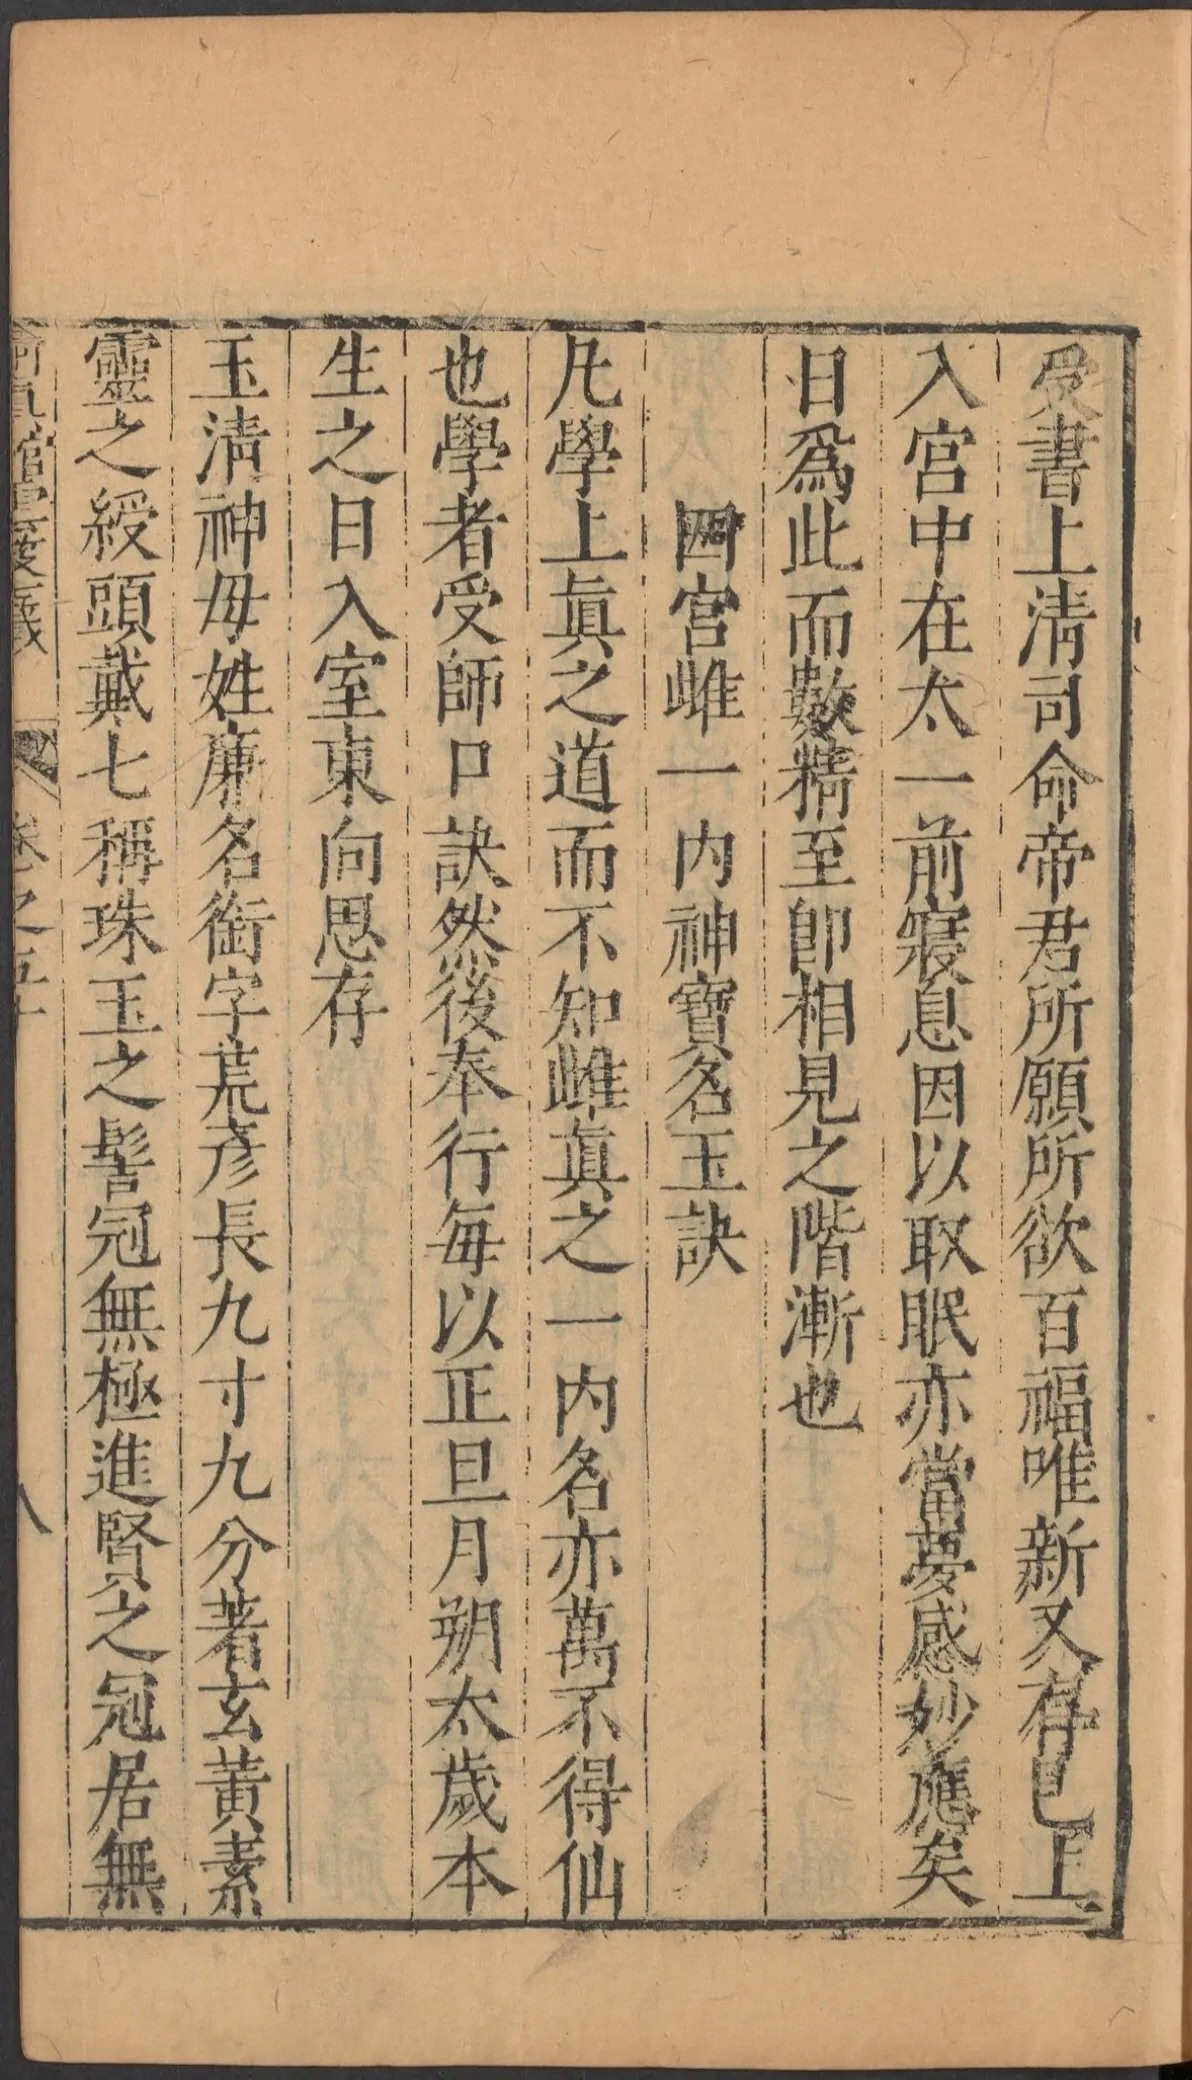 受書上淸司命帝君所願所欲百福唯新又存已上
入宮中在太一前寢息因以取眠亦當夢感妙應矣
日爲此而數精至卽相見之階漸也
四宮雌一內神寶名玉訣
凡學上眞之道而不知雌眞之一內名亦萬不得仙
也學者受師口訣然後奉行每以正旦月朔太歲本
生之日入室東向思存
玉淸神母姓廉名銜字荒彥長九寸九分著玄黃素
靈之綬頭戴七稱珠玉之髻冠無極進賢之冠居無
卷之五十
八